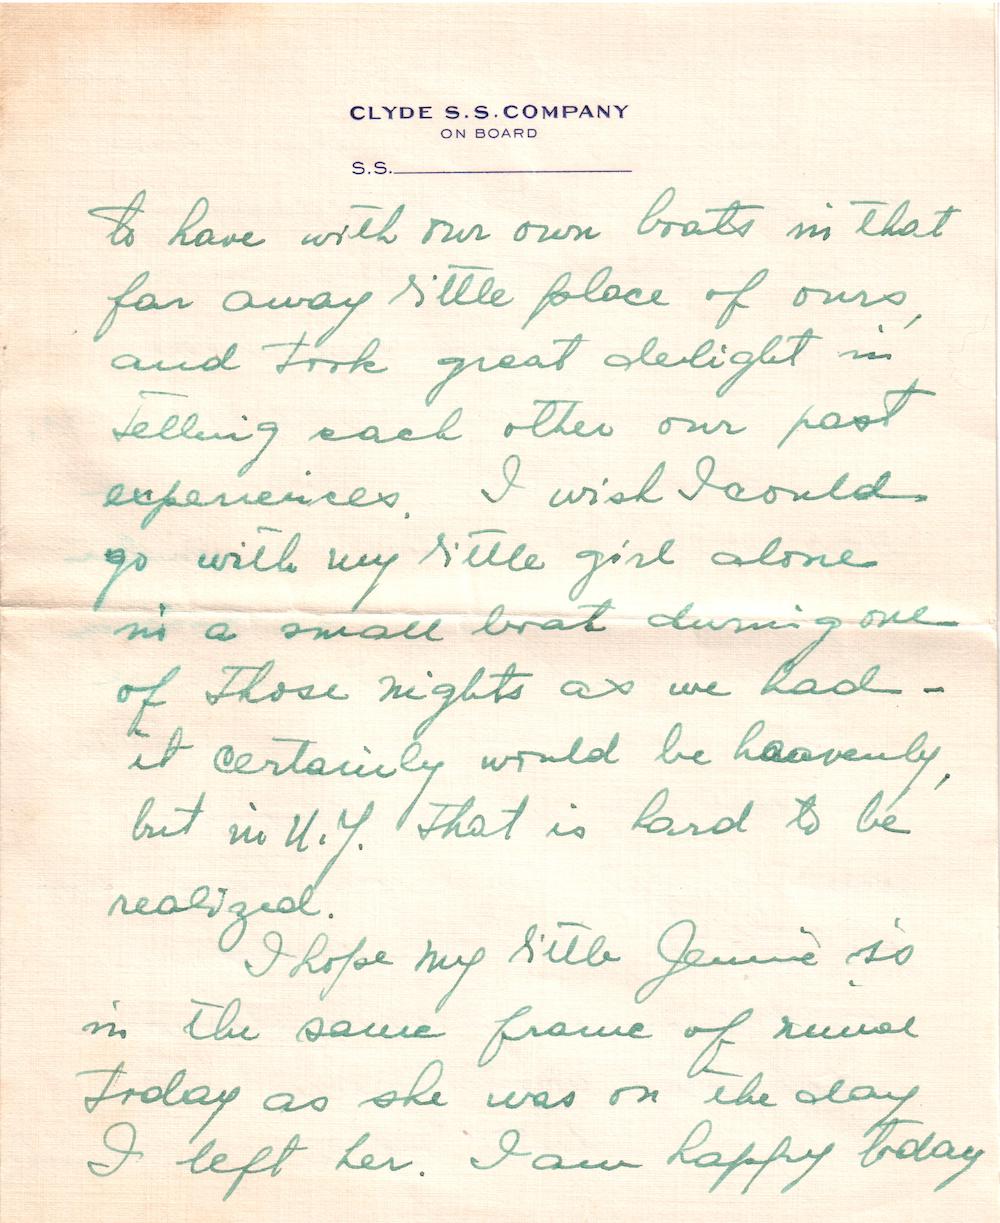 CLYDE S.S. COMPANY
ON BOARD
S.S.
to have with our own boats in that
far away little place of ours,
and took great delight in
telling each other our past
experiences. I wish I could
go with my little girl alone
in a small boat during one
of those nights as we had -
it certainly would be heavenly,
but in N.Y. that is hard to be
realized.
I hope my little Jennie is
in the same frame of mind
today as she was on the day
I left her. I am happy today